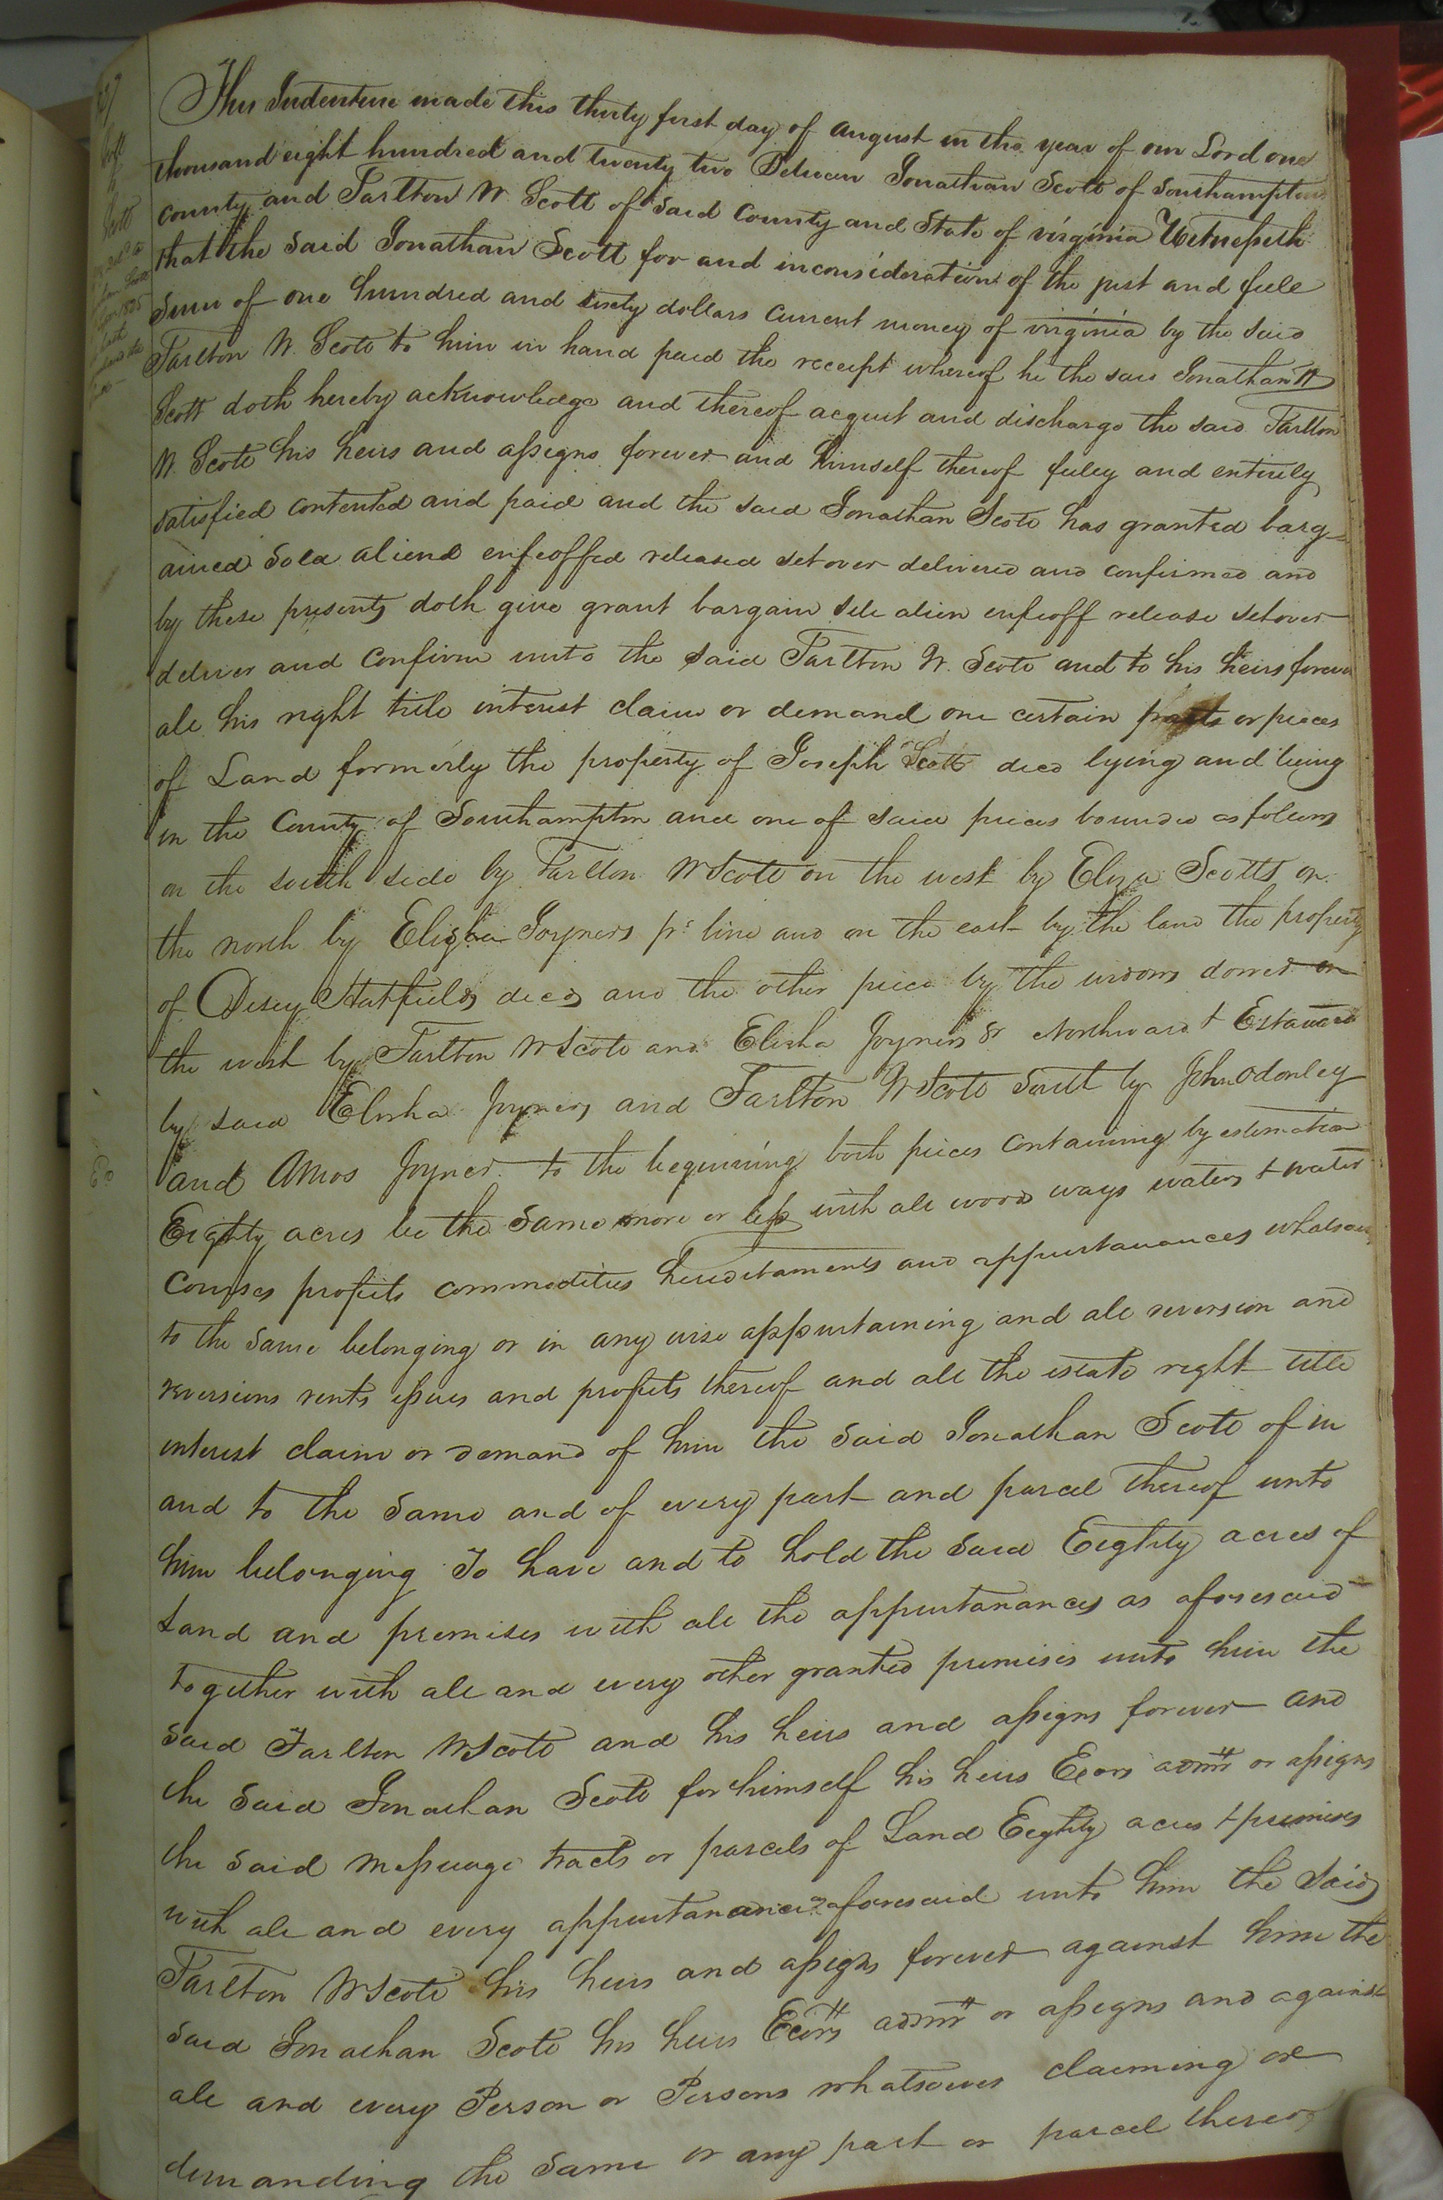 This Indenture made this thirty first day of august in the year of our Lord one
thousand eight hundred and twenty two Between Jonathan Scott of Southampton
county and Tarlton W Scott of said County and State of virginia Witnesseth
that the said Jonathan Scott for and in consideration of the just and full
Sum of one hundred and sixty dollars current money of virginia by the said
Tarlton W. Scott to him in hand paid the receipt whereof he the said Jonathan
Scott doth hereby acknowledge and thereof acquit and discharge the said Tarlton
W. Scott his heirs and assigns forever and himself thereof fully and entirely
satisfied contented and paid and the said Jonathan Scott has granted barg=
ained Sold aliend enfeoffed released set over delivered and confirmed and
by these presents doth give grant bargain sell alien enfeoff release set over
deliver and confirm unto the said Tarlton W. Scott and to his heirs forever
all his right title interest claim or demand one certain or pieces
of Land formerly the property of Joseph Scott decd lying and being
in the County of Southampton and one of said pieces bounded as follows
on the south side by Tarlton W Scott on the west by Eliza Scotts on
the north by Elisha Joyners pr line and on the east by the land the property
of Desey Hatfields decd, and the other piece by the widows dower on
the west by Tarlton W Scott and Elisha Joyners & Northward & Estward
by said Elisha Joyners, and Tarlton W Scott South by John Odonley
and Amos Joyner to the beginning both pieces containing by estimation
Eighty acres be the Same more or less with all wood ways waters & water
courses profits commodities hereditaments and appurtanances whatsoever
to the same belonging or in any wise appurtaining and all reversion and
reversions rents issues and profits thereof and all the estate right title
interest claim or demand of him the said Jonathan Scott of in
and to the Same and of every part and parcel thereof unto
him belonging To have and to hold the said Eighty acres of
Land and premises with all the appurtanances as aforesaid
together with all and every other granted premises unto him the
said Tarlton W Scott and his heirs and assigns forever and
the said Jonathan Scott for himself his heirs Exors admr or assigns
the said messuage tracts or parcels of Land Eighty acres & premises
with all and every appurtanances aforesaid unto him the said
Tarlton W Scott his heirs and assigns forever against him the
said Jonathan Scott his heirs Exors admr or assigns and against
all and every Person or Persons whatsoever claiming or
demanding the Same or any part or parcel thereof